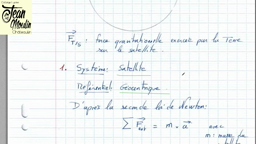 Jean
Moulin
F⃗T/S : force gravitationnelle exercée par la Terre
sur le satellite
1. Système: satellite
Référentiel Géocentrique
D'après la seconde loi de Newton:
∑ F⃗ext = m . a⃗ avec
m: masse du